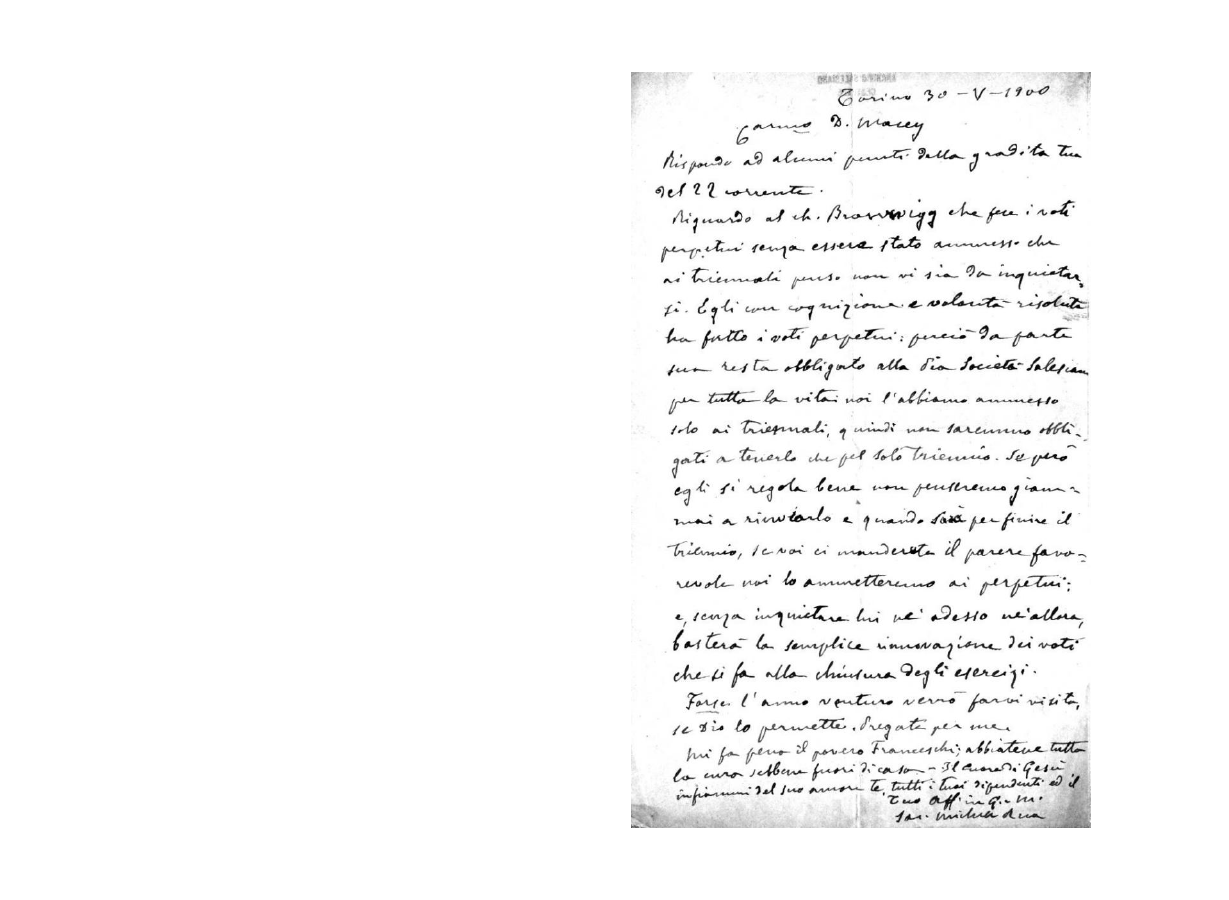 Torino 30 - V - 1900
Carmo D. Macey
Rispondo ad alcuni punti della gradita tua
del 22 corrente.
Riguardo al ch. Brownrigg che fece i voti
perpetui senza essere stato ammesso che
ai triennali penso non vi sia da inquietar-
si. Egli con cognizione e volontà risoluta
ha fatto i voti perpetui: perciò da parte
sua resta obbligato alla Pia Società Salesiana
per tutta la vita: noi l'abbiamo ammesso
solo ai triennali, quindi non saremmo obbli-
gati a tenerlo che pel solo triennio. Se però
egli si regola bene non penseremo giam-
mai a rinviarlo e quando sarà per finire il
triennio, se voi ci manderete il parere favo-
revole noi lo ammetteremo ai perpetui;
e, senza inquietare lui nè adesso nè allora,
basterà la semplice rinnovazione dei voti
che si fa alla chiusura degli esercizi.
Forse l'anno venturo verrò farvi visita,
se Dio lo permette. Pregate per me.
Mi fa pena il povero Franceschi; abbiatene tutta
la cura sebbene fuori di casa - Il Cuore di Gesù
infiammi del suo amore te, tutti i tuoi dipendenti ed il
Tuo Aff in G. e M.
Sac. Michele Rua